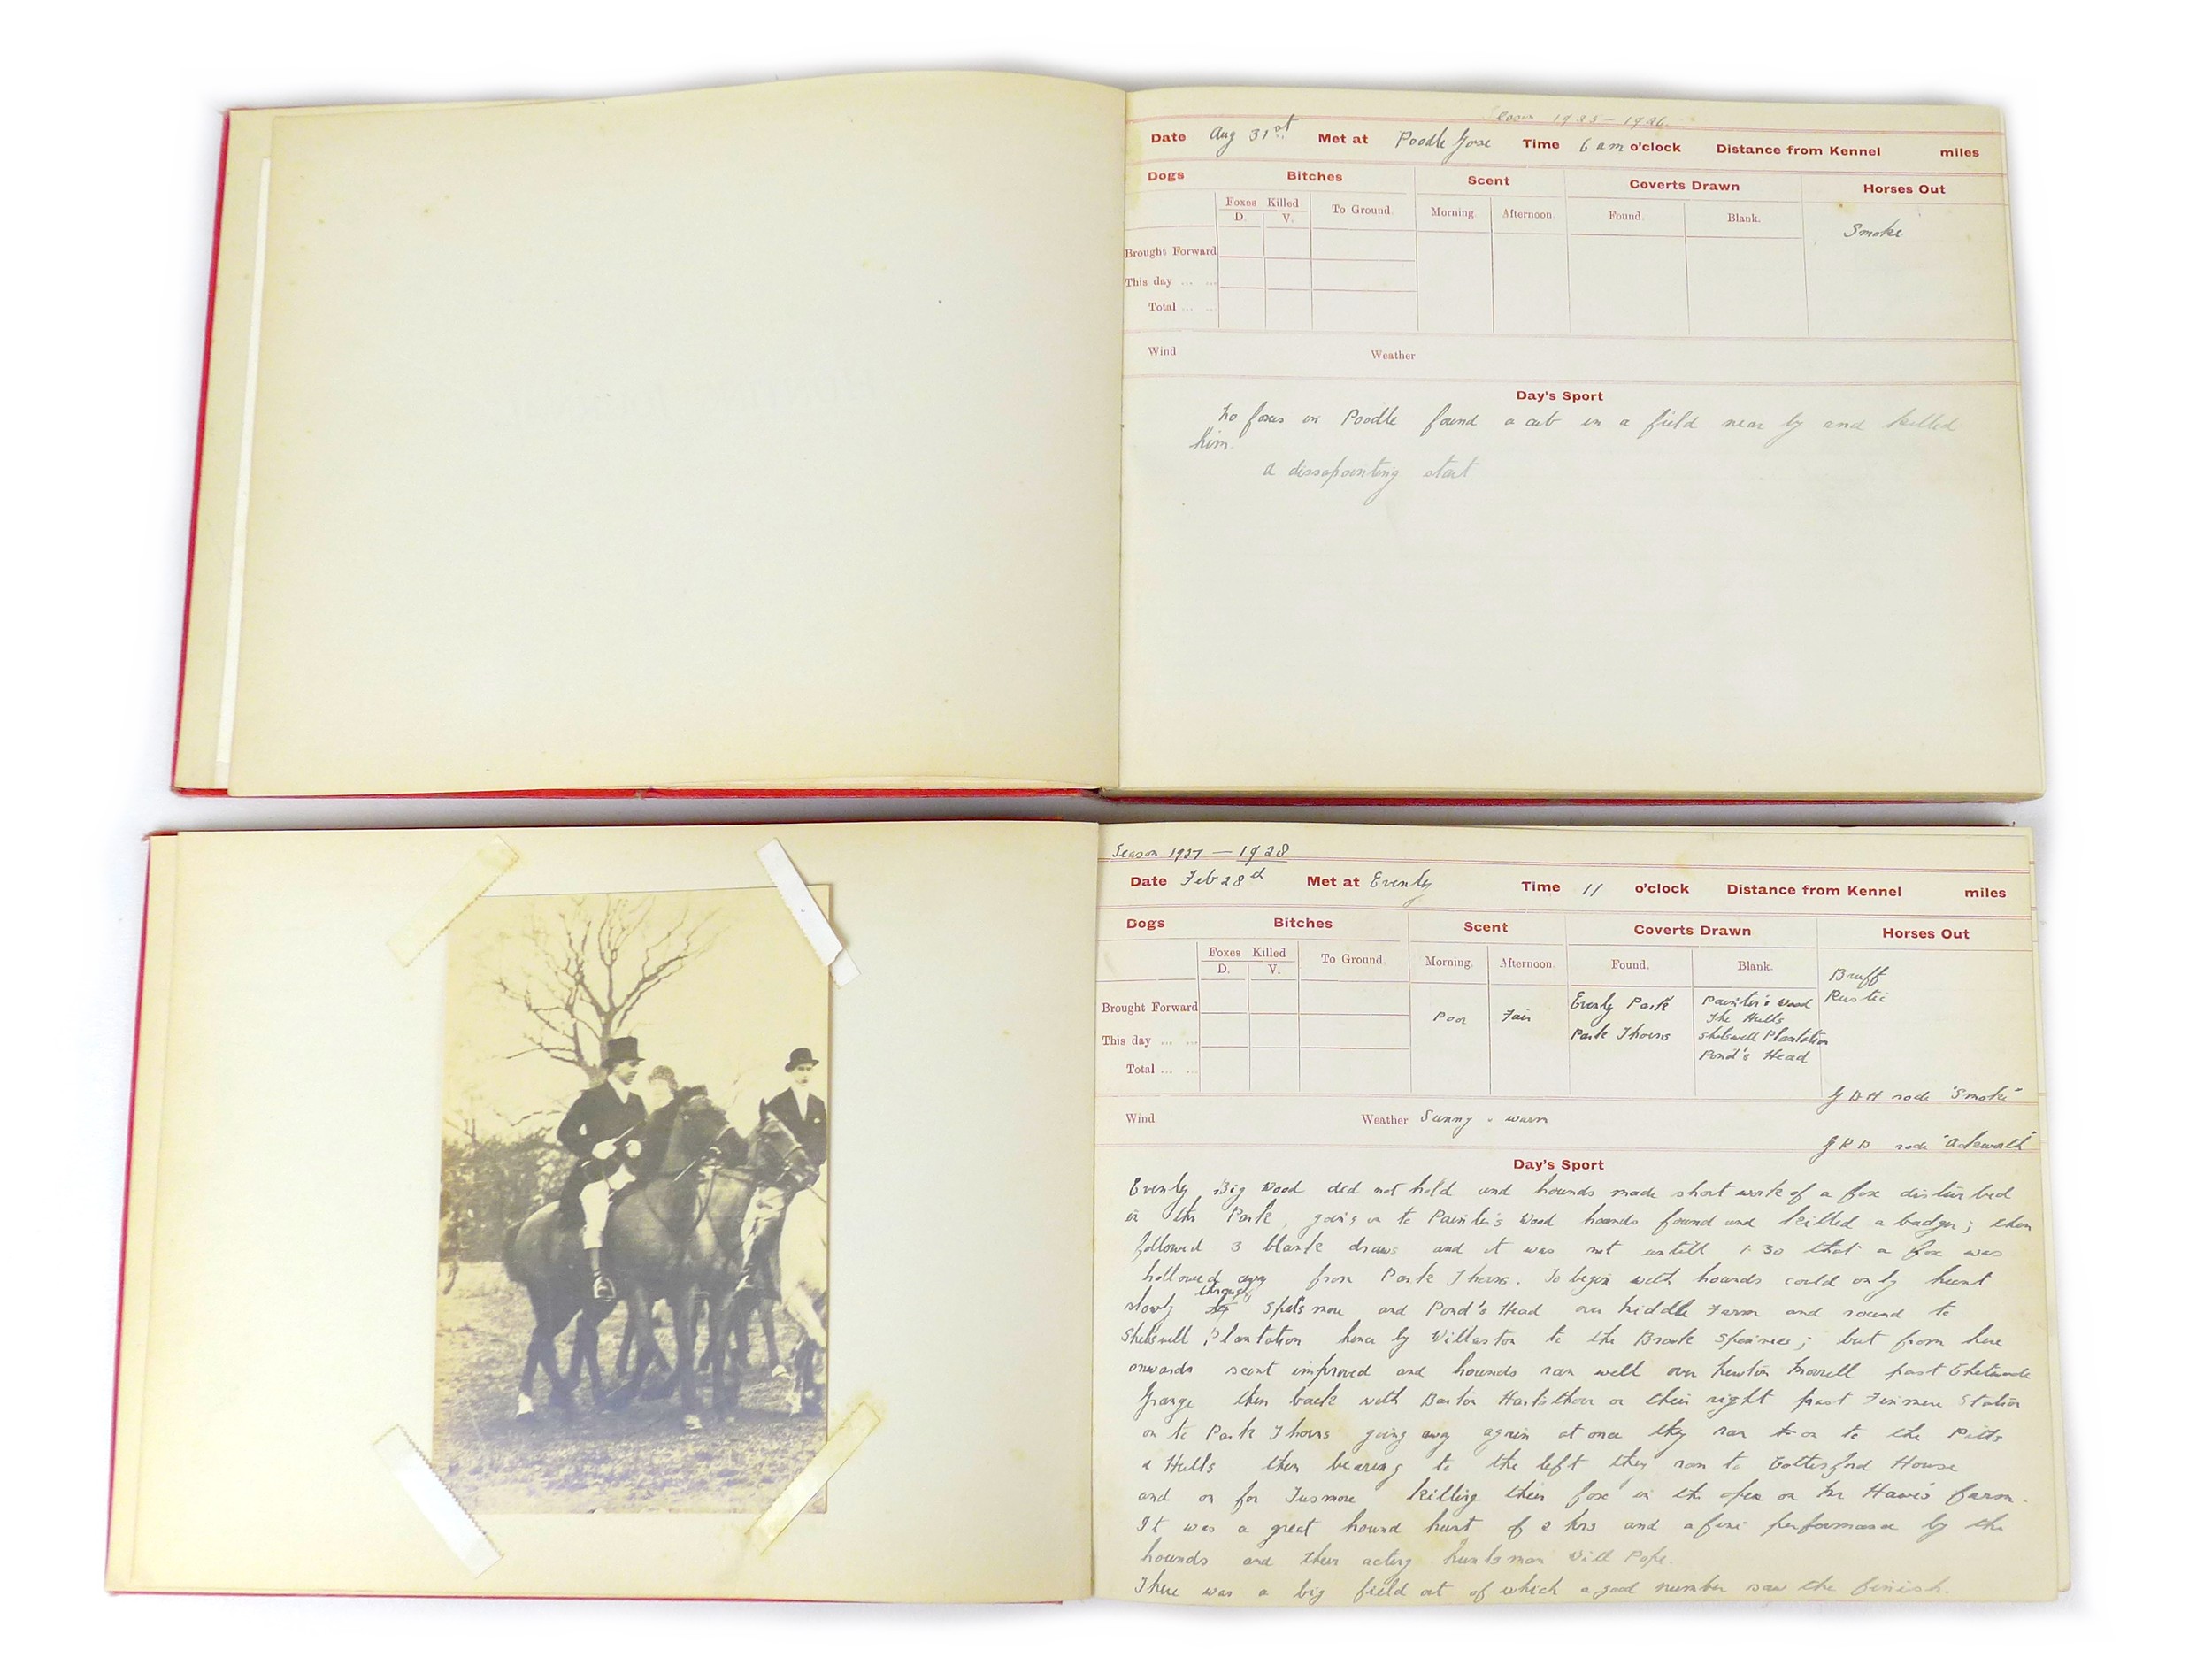 Season 1925 – 1926
Date Aug 31st Met at Poodle Gorse Time 6 am o'clock Distance from Kennel miles
Dogs Bitches Scent Coverts Drawn Horses Out
Foxes Killed To Ground. Morning. Afternoon. Found. Blank.
D. V.
Smoke
Brought Forward
This day ... ...
Total ... ...
Wind Weather
Day's Sport
No foxes in Poodle found a cub in a field near by and killed
him.
a dissapointing start
Season 1927 — 1928
Date Feb 28th Met at Evenly Time 11 o'clock Distance from Kennel miles
Dogs Bitches Scent Coverts Drawn Horses Out
Foxes Killed To Ground. Morning. Afternoon. Found. Blank.
D. V.
Bruff
Rustic
Brought Forward Poor Fair Evenly Park Painter's Wood
The Hulls
This day ... ... Park Thorns Shelswell Plantation
Pond's Head
Total ... ...
G D H rode "Smoke"
Wind Weather Sunny . warm
rode "Ackworth"
Day's Sport
Evenly Big Wood did not hold and hounds made short work of a fox disturbed
in the Park, going on to Painter's Wood hounds found and killed a badger; then
followed 3 blank draws and it was not untill 1.30 that a fox was
hollowed away from Park Thorns. To begin with hounds could only hunt
slowly through Spilsmore and Pond's Head over Middle Farm and round to
Shelswell Plantation hence by Willaston to the Brook Spinnies; but from here
onwards scent improved and hounds ran well over Newton Morrell past Chetwode
Grange then back with Barton Hartshorn on their right past Finmere Station
on to Park Thorns going away again at once they ran on to the Pitts
& Hulls then bearing to the left they ran to Cottisford House
and on for Tusmore killing their fox in the open on Mr Haws's farm.
It was a great hound hunt of 2 hrs and a fine performance by the
hounds and their acting huntsman Will Pope.
There was a big field out of which a good number saw the finish.